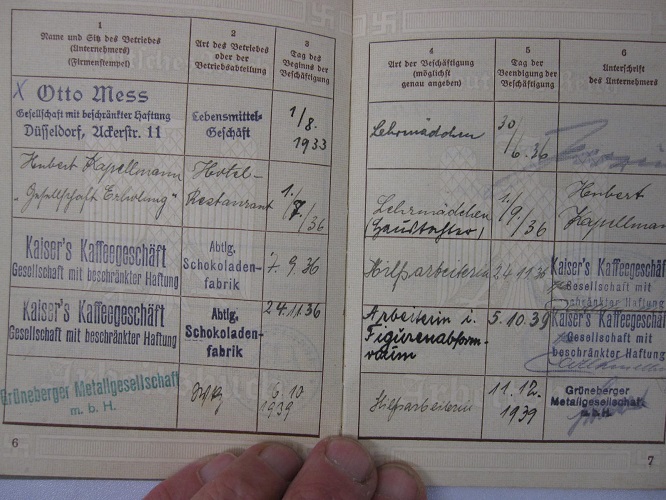 1
Name und Sitz des Betriebes
(Unternehmers)
(Firmenstempel)
2
Art des Betriebes
oder der
Betriebsabteilung
3
Tag des
Beginns der
Beschäftigung
X Otto Mess
Gesellschaft mit beschränkter Haftung
Düsseldorf, Ackerstr. 11
Lebensmittel-
Geschäft
1/8.
1933
Hubert Kapellmann
"Gesellschaft Erholung"
Hotel-
Restaurant
1.
/36
Kaiser's Kaffeegeschäft
Gesellschaft mit beschränkter Haftung
Abtlg.
Schokoladen-
fabrik
7. 9. 36
Kaiser's Kaffeegeschäft
Gesellschaft mit beschränkter Haftung
Abtlg.
Schokoladen-
fabrik
24.11.36
Grüneberger Metallgesellschaft
m. b. H.
6. 10
1939
6
4
Art der Beschäftigung
(möglichst
genau angeben)
5
Tag der
Beendigung der
Beschäftigung
6
Unterschrift
des Unternehmers
Lehrmädchen
30/
6. 36
Lehrmädchen
(Haustochter)
1./9./36
Hubert
Kapellmann
Hilfsarbeiterin
24.11.36
Kaiser's Kaffeegeschäf
Gesellschaft mit
schränkter Haftung
Arbeiterin i.
Figurenabform-
raum
5.10.39
Kaiser's Kaffeegeschäf
Gesellschaft mit
beschränkter Haftung
Hilfsarbeiterin
11. 12.
1939
Grüneberger
Metallgesellschaft
m.b.H.
7